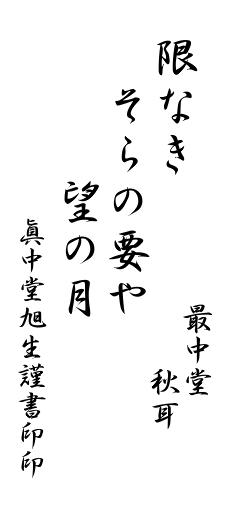 限なき
そらの要や
望の月
最中堂
秋耳
眞中堂旭生謹書印印